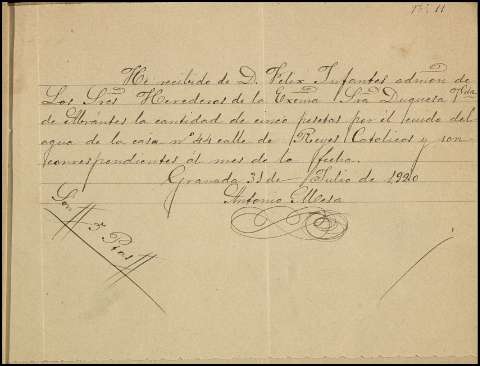 Nº 11
He recibido de D. Felix Infantes admon de
Los Sres Herederos de la Excma Sra Duquesa Vda
de Abrantes la cantidad de cinco pesetas por el cuido del
agua de la casa nº 44 calle de Reyes Catolicos y son
correspondientes al mes de la fecha.
Granada 31 de Julio de 1920
Antonio Mesa
Son 5 Ptas